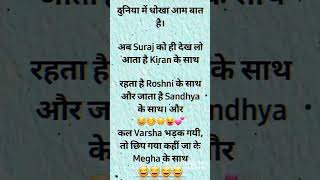 दुनिया में धोखा आम बात
है।
अब Suraj को ही देख लो
आता है Kiran के साथ
रहता है Roshni के साथ
और जाता है Sandhya
के साथ। और
😅😊😊😫💕
कल Varsha भड़क गयी,
तो छिप गया कहीं जा के
Megha के साथ
😅😅😅😅